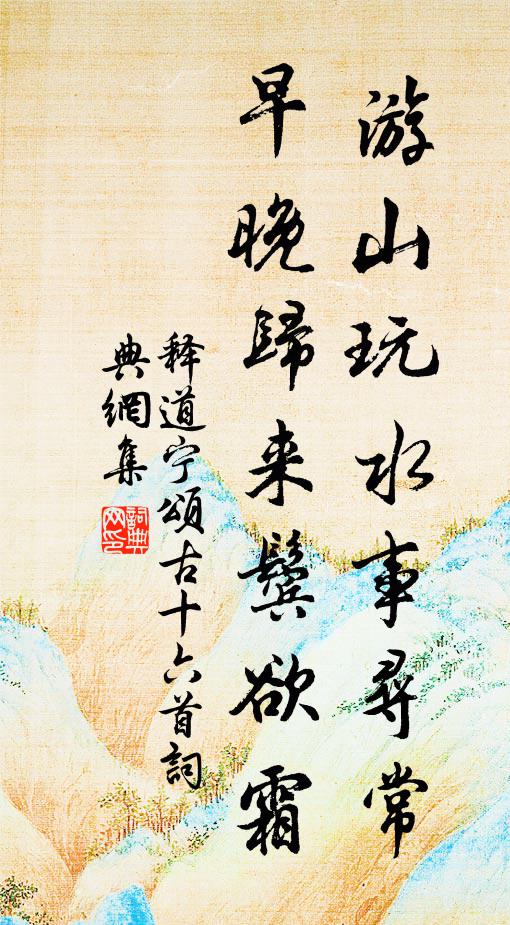 游山玩水事尋常
早晚歸来鬓欲霜
释道宁頌古十六首詞
典網集
詞典
网印